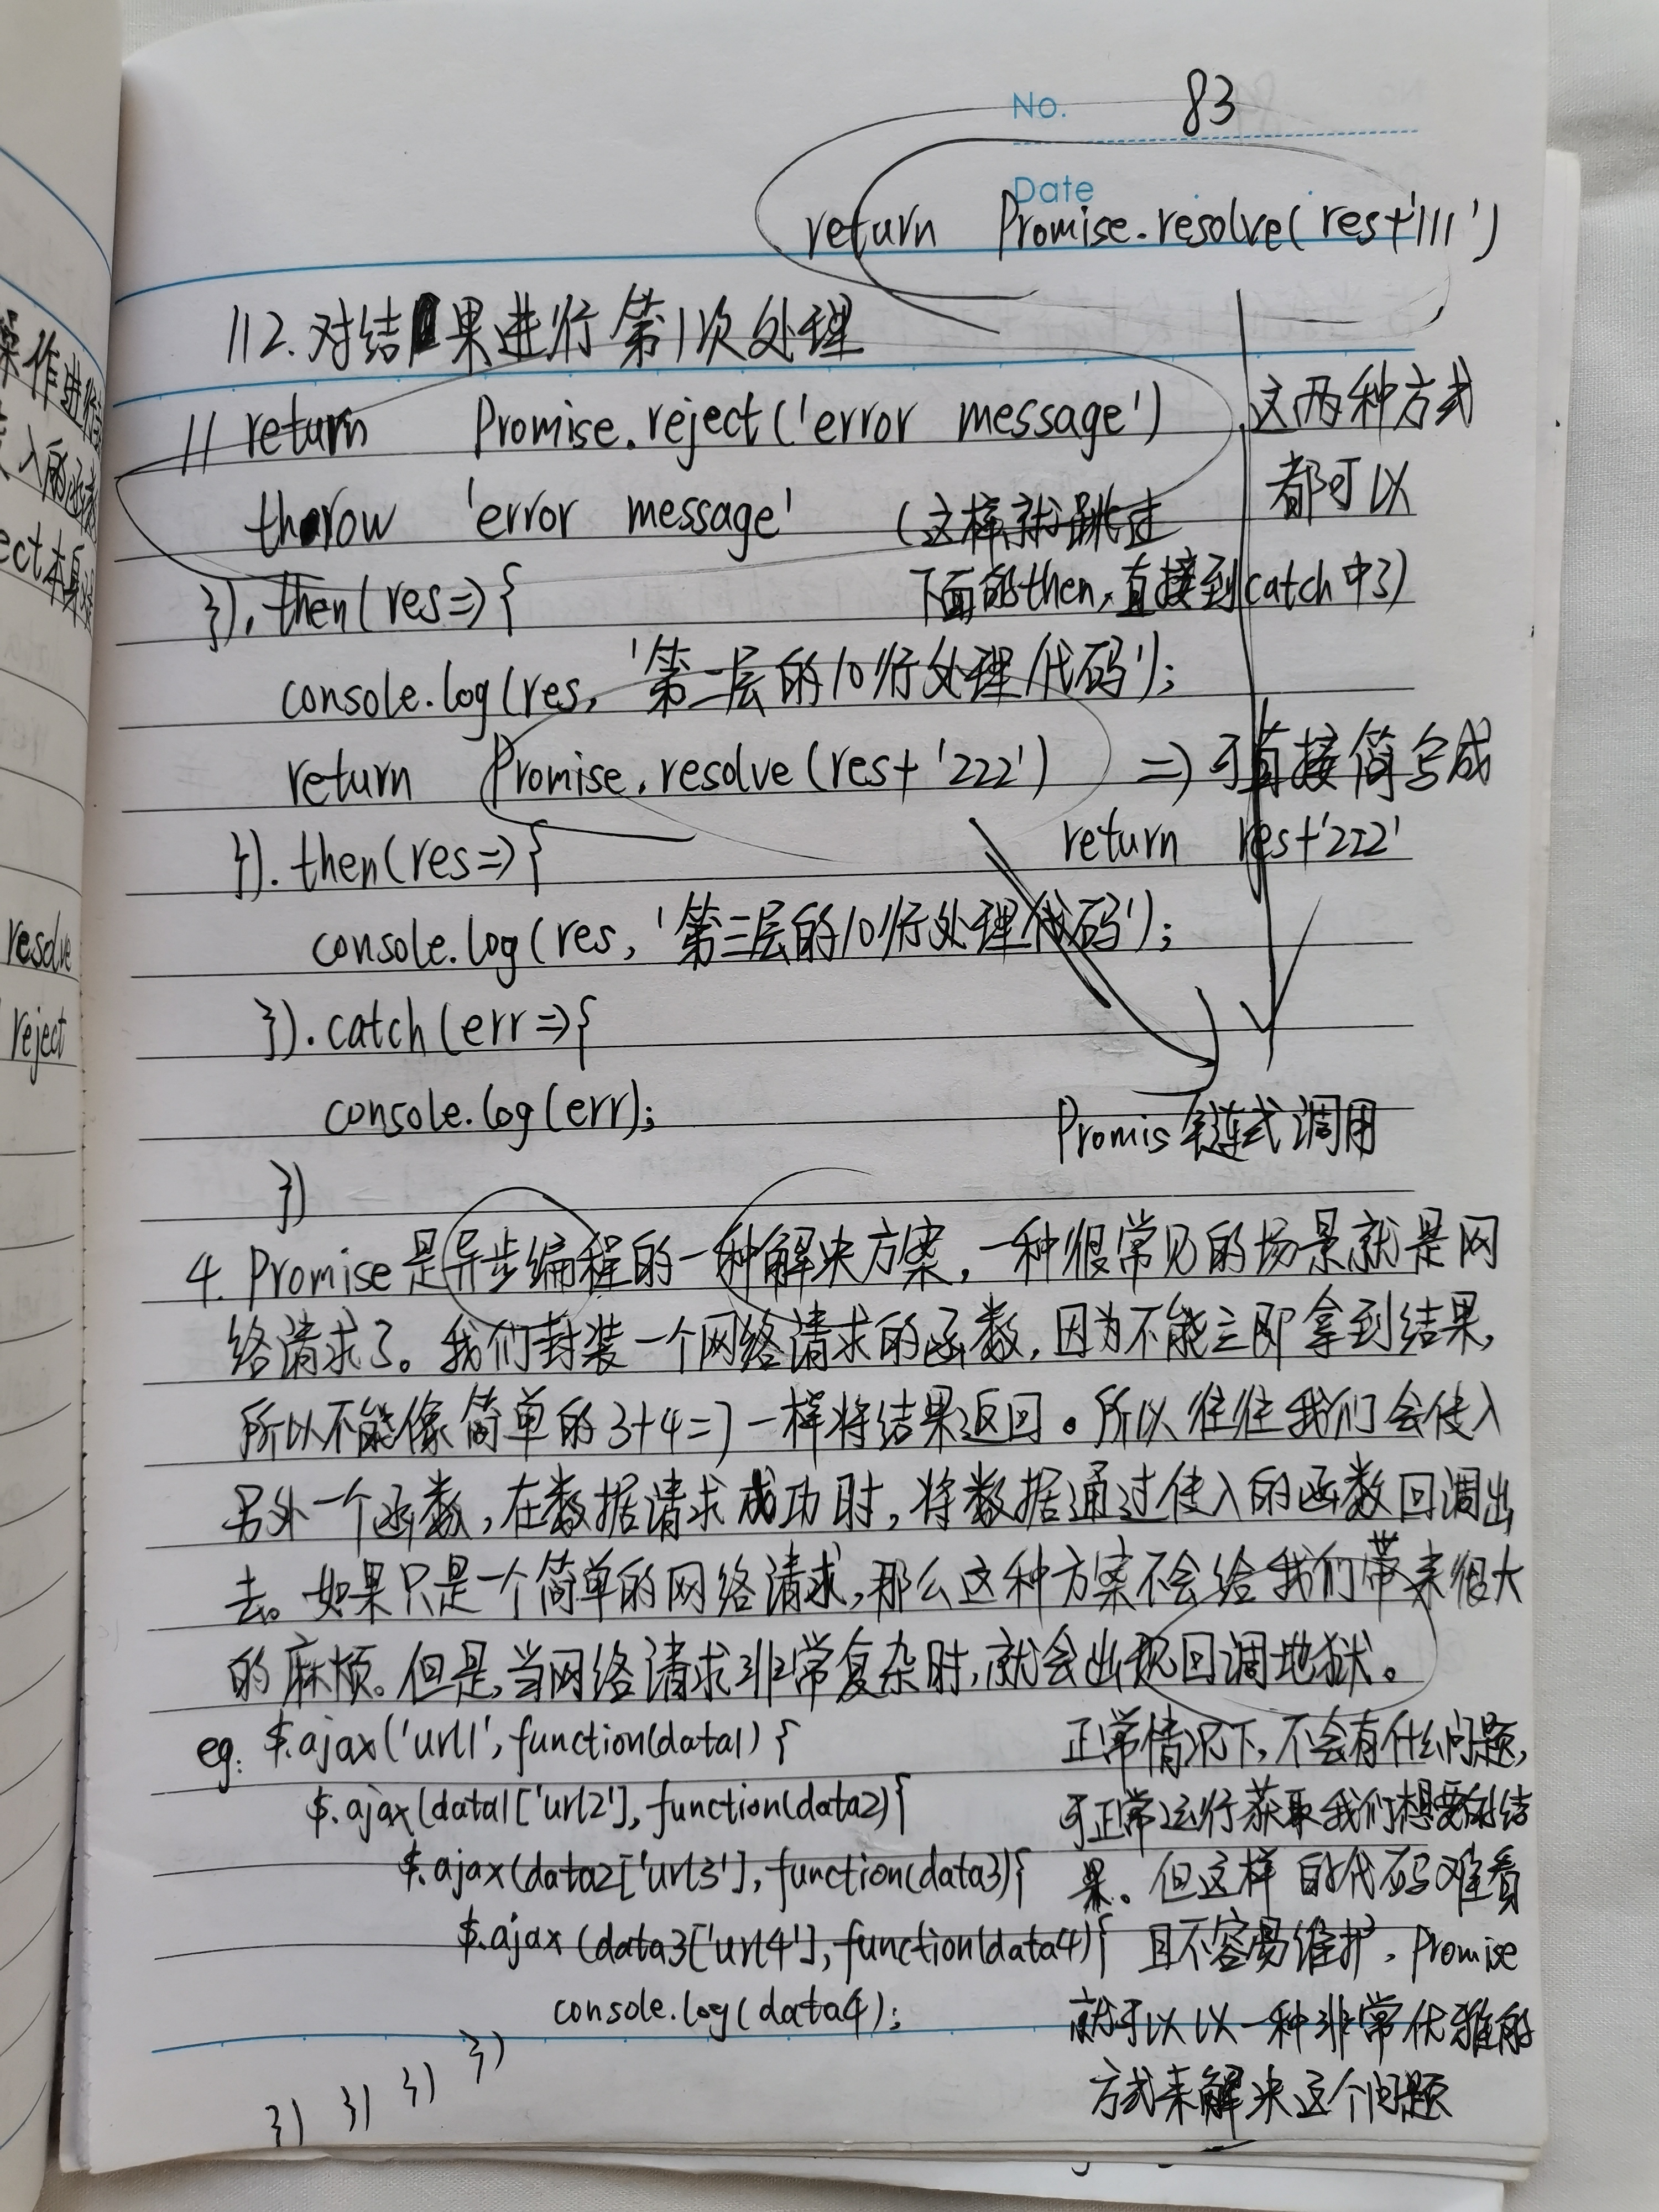 No. 83
Date
return Promise.resolve(res+'111')
//2.对结果进行第1次处理
// return Promise.reject('error message')
这两种方式
都可以
throw 'error message' (这样就跳过
下面的then,直接到catch中了)
}).then(res=>{
console.log(res, '第二层的10行处理代码');
return Promise.resolve(res+'222') => 可直接简写成
return res+'222'
}).then(res=>{
console.log(res, '第三层的10行处理代码');
}).catch(err=>{
console.log(err);
Promise链式调用
})
4. Promise是异步编程的一种解决方案,一种很常见的场景就是网
络请求了。我们封装一个网络请求的函数,因为不能立即拿到结果,
所以不能像简单的3+4=7一样将结果返回。所以往往我们会传入
另外一个函数,在数据请求成功时,将数据通过传入的函数回调出
去。如果只是一个简单的网络请求,那么这种方案不会给我们带来很大
的麻烦。但是,当网络请求非常复杂时,就会出现回调地狱。
eg: $.ajax('url1', function(data1) {
$.ajax(data1['url2'], function(data2){
$.ajax(data2['url3'], function(data3){
$.ajax(data3['url4'], function(data4){
console.log(data4);
}) }) }) })
正常情况下,不会有什么问题,
可正常运行获取我们想要的结
果。但这样的代码难看
且不容易维护,Promise
就可以以一种非常优雅的
方式来解决这个问题
操作进行
入的函数
ect本身
resolve
reject